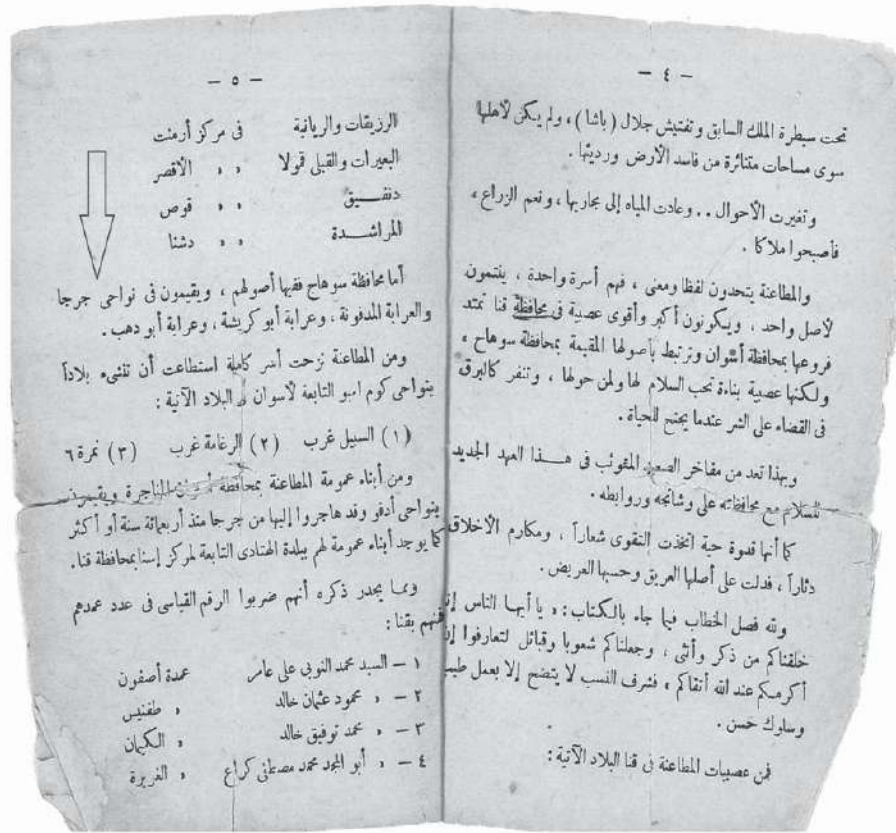 - ٤ -
تحت سيطرة الملك السابق وتفتيش جلال (باشا)، ولم يكن لأهلها
سوى مساحات متناثرة من فاسد الأرض ورديئها.
وتغيرت الأحوال.. وعادت المياه إلى مجاريها، ونعم الزراع،
فأصبحوا ملاكا.
والمطاعنة يتحدون لفظا ومعنى، فهم أسرة واحدة، ينتمون
لأصل واحد، ويكونون أكبر وأقوى عصبية فى محافظة قنا تمتد
فروعها بمحافظة أسوان وترتبط بأصولها المقيمة بمحافظة سوهاج،
ولكنها عصبية بناءة تحب السلام لها ولمن حولها، وتنفر كالبرق
فى القضاء على الشر عندما يجنح للحياة.
وبهذا تعد من مفاخر الصعيد المتوثب فى هــذا العهد الجديد
للسلام مع محافظاته على وشائجه وروابطه.
كما أنها قدوة حية اتخذت التقوى شعاراً، ومكارم الأخلاق
دثاراً، فدلت على أصلها العريق وحسبها العريض.
ولله فصل الخطاب فيما جاء بالكتاب: « يا أيها الناس إنا
خلقناكم من ذكر وأنثى، وجعلناكم شعوبا وقبائل لتعارفوا إن
أكرمكم عند الله أتقاكم » فشرف النسب لا يتضح إلا بعمل طيب
وسلوك حسن.
فمن عصبيات المطاعنة فى قنا البلاد الآتية:
- ٥ -
الرزيقات والريانية فى مركز أرمنت
البعيرات والقبلى قمولا » » الأقصر
دنفــيق » » قوص
المراشــدة » » دشنا
أما محافظة سوهاج ففيها أصولهم، ويقيمون فى نواحى جرجا
والعرابة المدفونة، وعرابة أبو كريشة، وعرابة أبو دهب.
ومن المطاعنة نزحت أسر كاملة استطاعت أن تنشىء بلاداً
بنواحى كوم امبو التابعة لأسوان و البلاد الآتية:
(١) السيل غرب (٢) الرغامة غرب (٣) نمرة ٦
ومن أبناء عمومة المطاعنة بمحافظة ويقيمون
بنواحى أدفو وقد هاجروا إليها من جرجا منذ أربعمائة سنة أو أكثر
كما يوجد أبناء عمومة لهم ببلدة الهنادى التابعة لمركز إسنا بمحافظة قنا.
ومما يجدر ذكره أنهم ضربوا الرقم القياسى فى عدد عمدهم
فمنهم بقنا:
١ - السيد محمد النوبى على عامر عمدة أصفون
٢ - » محمود عثمان خالد » طفنيس
٣ - » محمد توفيق خالد » الكيمان
٤ - » أبو المجد محمد مصطفى كراع » الغريرة